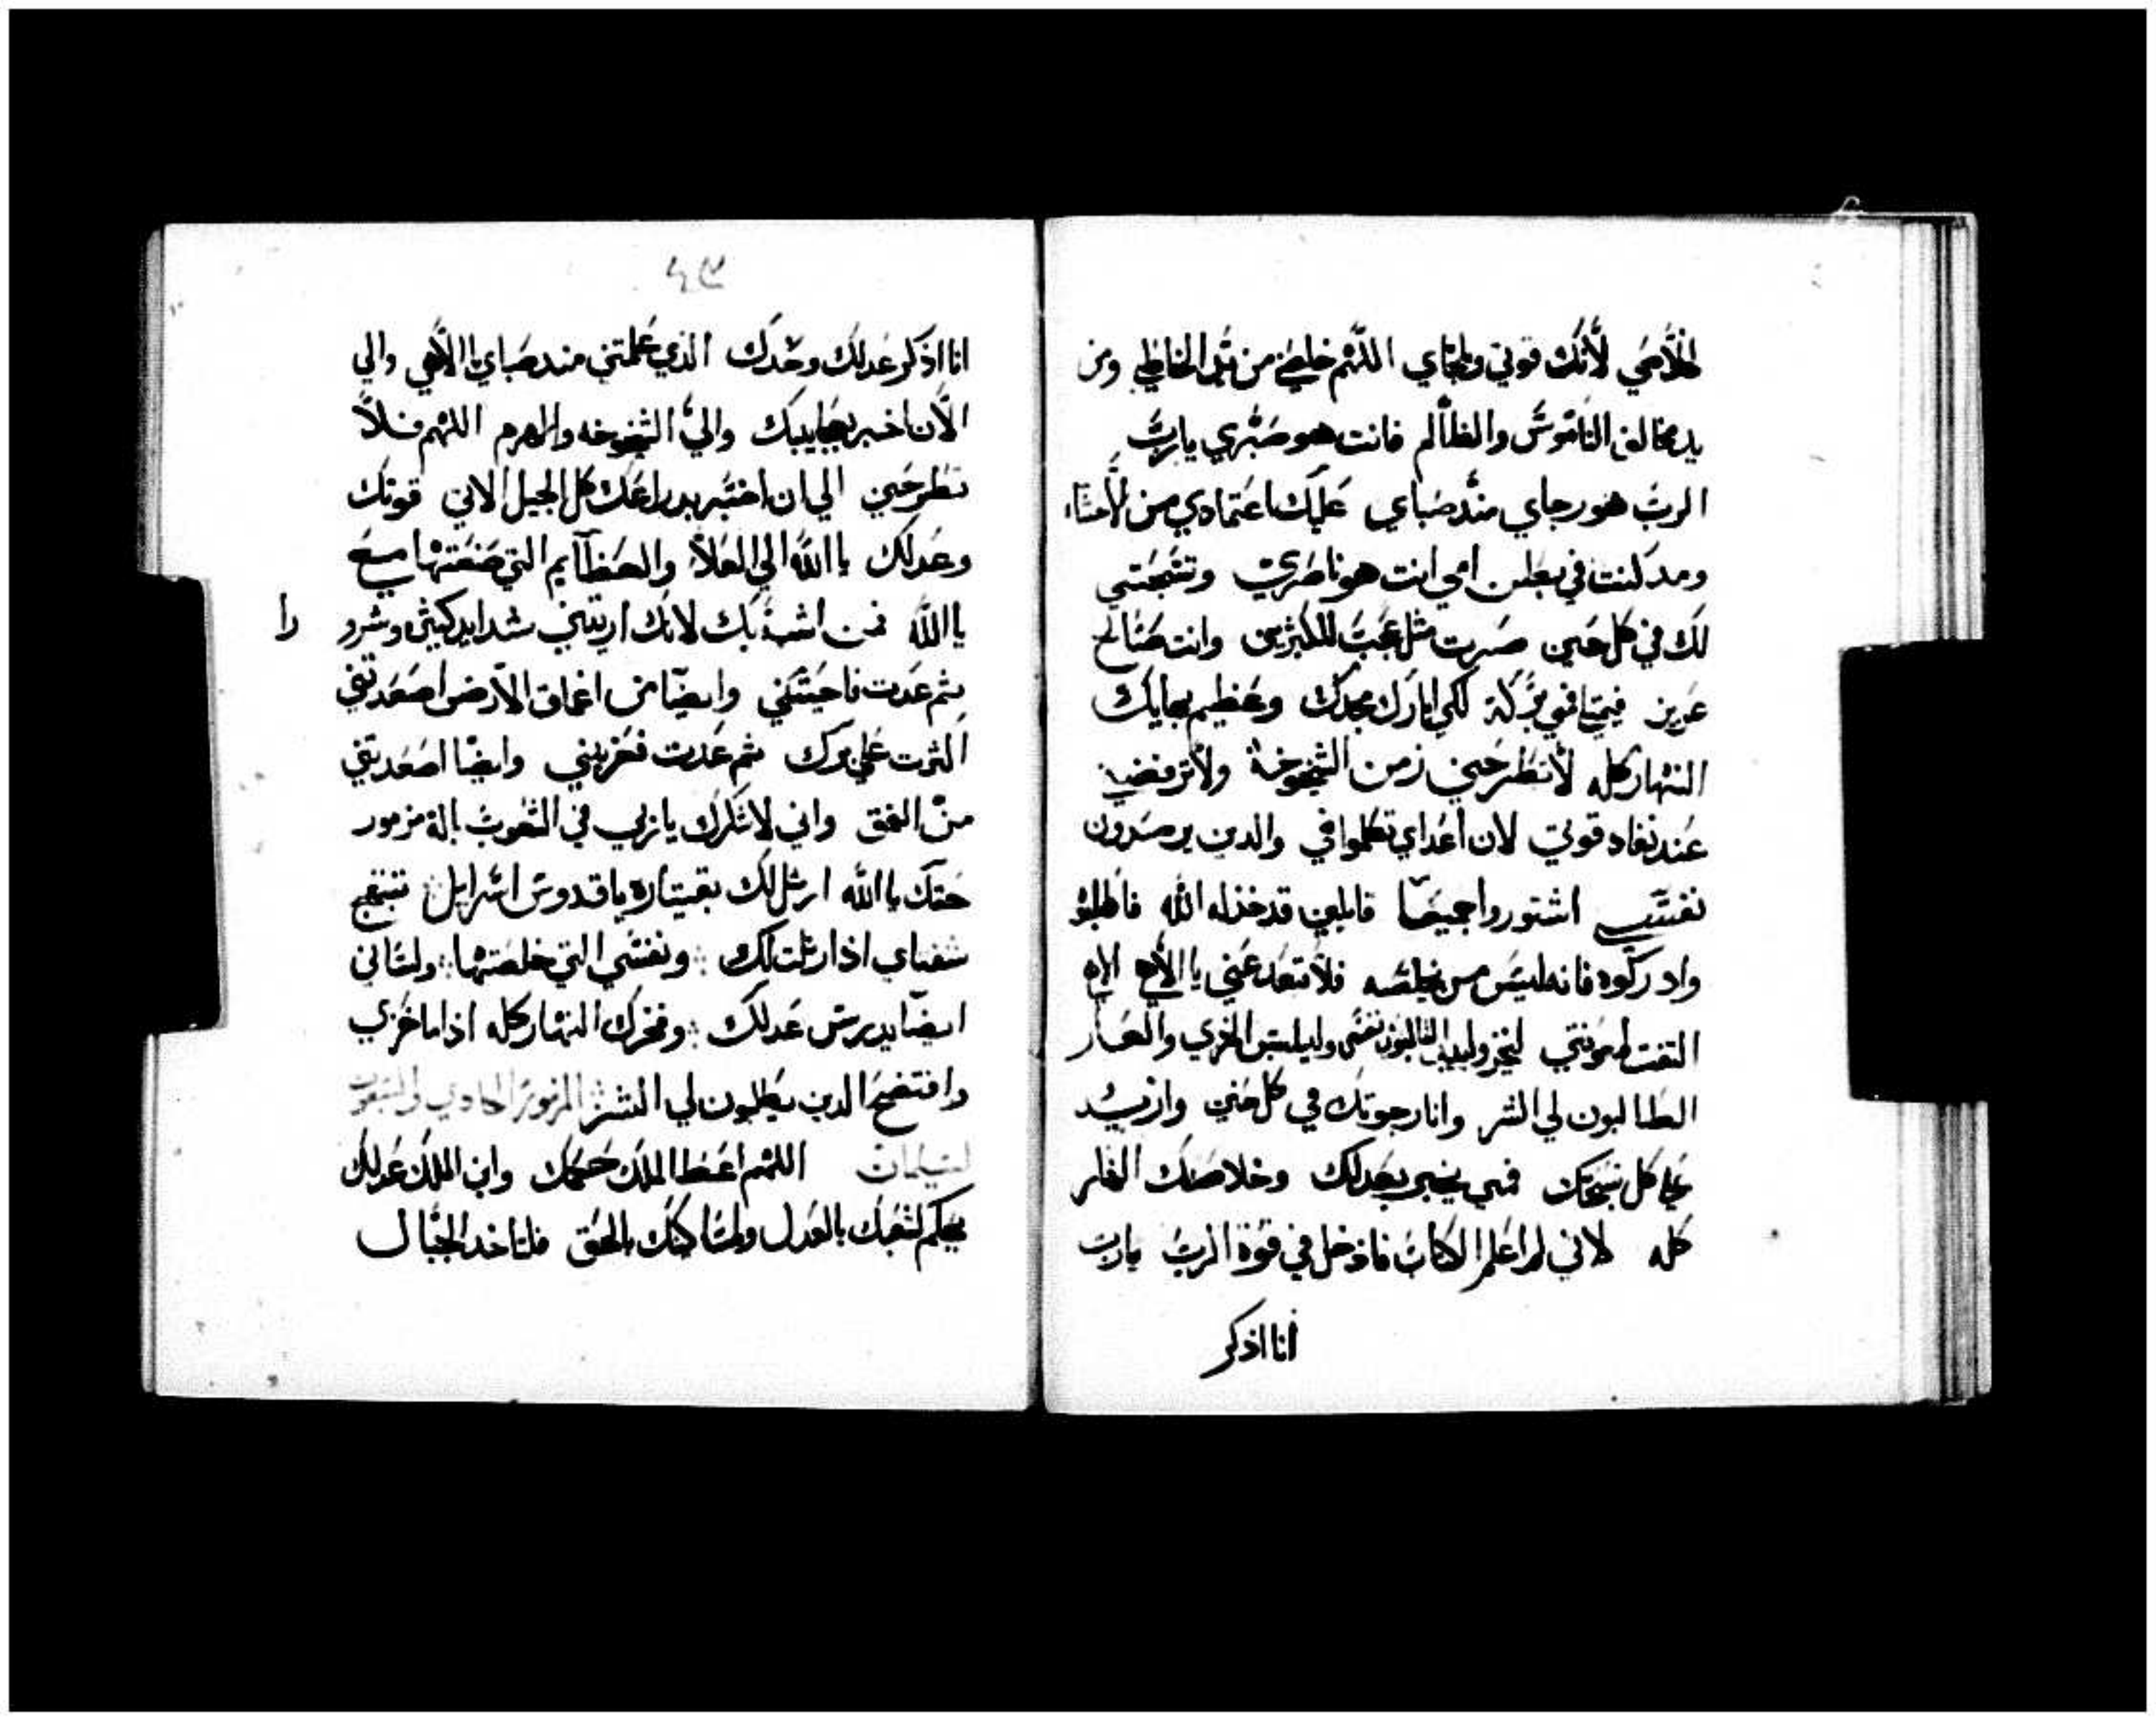 لخلاصي لأنك قوتي وملجاي اللهم خلصني من يدي الخاطي ومن
يد مخالف الناموس والظالم فانت هو صبري يارب
الرب هو رجاي مند صباي عليك اعتمادي من الاحشاء
ومد كنت في بطن امي انت هو ناصري وتسبحتي
لك في كل حين صرت مثل عجب للكثيرين وانت صالح
عزيز فيمتلي فمي بركة لكي ابارك مجدك وعظيم بهايك
النهار كله لا تطرحني زمن الشيخوخة ولا ترفضني
عند نفاد قوتي لان اعداي تكلموا في والدين يرصدون
نفسي اشتوروا جميعا قايلين قد خذله الله فاطلبو
وادركوه فانه ليس من يخلصه فلا تبعد عني يا الاهي الاهي
التفت لمعونتي ليخز وليبيد الطالبون نفسي وليلبس الخزي والعار
الطالبون لي الشر وانا رجوتك في كل حين وازيد
علي كل تسبحتك فمي يخبر بعدلك وخلاصك النهار
كله لاني لم اعلم الكتاب فادخل في قوة الرب يارب
انا اذكر
٩٤
انا اذكر عدلك وحدك الذي علمتني مند صباي يا الاهي والي
الآن اخبر بعجايبك والي الشيخوخه والهرم اللهم فلا
تطرحني الي ان اخبر بدراعك كل الجيل الاتي قوتك
وعدلك يا الله الي العلا والعظايم التي صنعتها مع
يا الله فمن اشبه بك لانك اريتني شدايد كثيره وشرور
را
ثم عدت فاحييتني وايضا من اعماق الارض اصعدتني
اكثرت علي برك ثم عدت فعزيتني وايضا اصعدتني
من العمق واني لاشكرك يا ربي في الشعوب بالة مزمور
حقك يا الله ارتل لك بقيتاره يا قدوس اسرايل تبتهج
شفتاي اذا رتلت لك ونفسي التي خلصتها ولساني
ايضا يدرس عدلك وفخرك النهار كله اذا ما خزي
وافتضح الدين يطلبون لي الشر المزمور الحادي والسبعون
لسليمان اللهم اعط الملك حكمك وابن الملك عدلك
ليحكم لشعبك بالعدل ولمساكنك بالحق فلتاخد الجبال